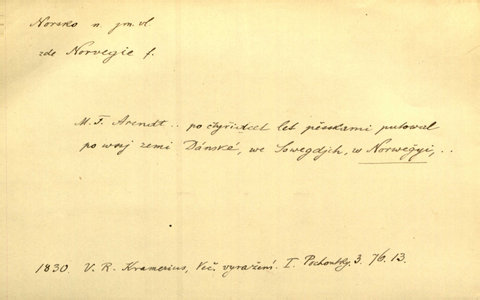 Norsko n. jm. vl
zde Norvegie f.
M. F. Arendt .. po čtyřidcet let pěsskami putowal
po wssj zemi Dánské, we Sswegdjch, w Norwegyi, ..
1830. V. R. Kramerius, Več. vyražení. I. 3. 76. 13.